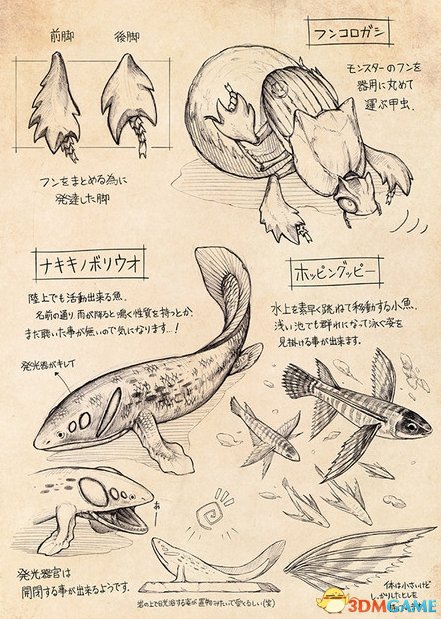 前脚
後脚
フンをまとめる為に
発達した脚
フンコロガシ
モンスターのフンを
器用に丸めて
運ぶ甲虫.
ナキキノボリウオ
陸上でも活動出来る魚.
名前の通り雨が降ると鳴く性質を持つとか.
まだ聴いた事が無いので気になります…!
発光器がキレイ
ホッピングッピー
水上を素早く跳ねて移動する小魚.
浅い池でも群れになって泳ぐ姿を
見掛ける事が出来ます.
あ
発光器官は
開閉する事が出来るようです.
岩の上で日光浴する事が 置物みたいで愛くるしい(笑)
体は小さいけど
しっかりしたヒレを
3DMGAME